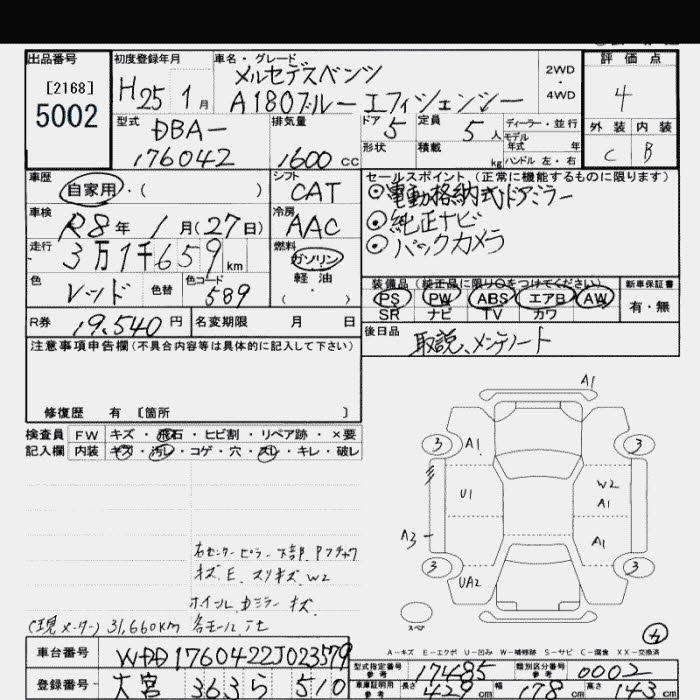 出品番号
[2168]
5002
初度登録年月
H25年1月
車名・グレード
メルセデスベンツ
A180ブルーエフィシェンシー
2WD・4WD
評価点
4
外装 内装
C B
型式
DBA-
176042
排気量
1600cc
ドア 5
定員 5人
ディーラー・並行
モデル年式 年
形状
積載 kg
ハンドル 左・右
車歴
自家用・( )
シフト
CAT
セールスポイント(正常に機能するものに限ります)
◎電動格納式ドアミラー
◎純正ナビ
◎バックカメラ
車検
R8年1月(27日)
冷房
AAC
走行
3万1千659km
燃料
ガソリン
軽油
( )
色
レッド
色替
色コード
589
装備品(純正品に限り○をつけてください)
PS PW ABS エアB AW
SR ナビ TV カワ
新車保証書
有・無
R券
19,540円
名変期限 月 日
後日品
取説、メンテノート
注意事項申告欄(不具合内容等は具体的に記入して下さい)
修復歴 有 [箇所 ]
検査員記入欄
FW キズ・飛石・ヒビ割・リペア跡・×要
内装 キズ・汚レ・コゲ・穴・スレ・キレ・破レ
右センターピラー下部
キズE.スリキズ.W2
ホイル.Dミラーキズ.
(現メーター)31,660km
A1
3
A1
3
U1
W2
A1
A3
A1
3
UA2
3
スペア
A-キズ E-エクボ U-凹み W-補修跡 S-サビ C-腐食 XX-交換済
車台番号
WDD1760422J023579
登録番号
大宮 363 ら 510
型式指定番号 参考
17485
類別区分番号 参考
0002
車庫証明用 参考
長さ 429cm
幅 178cm
高さ 143cm